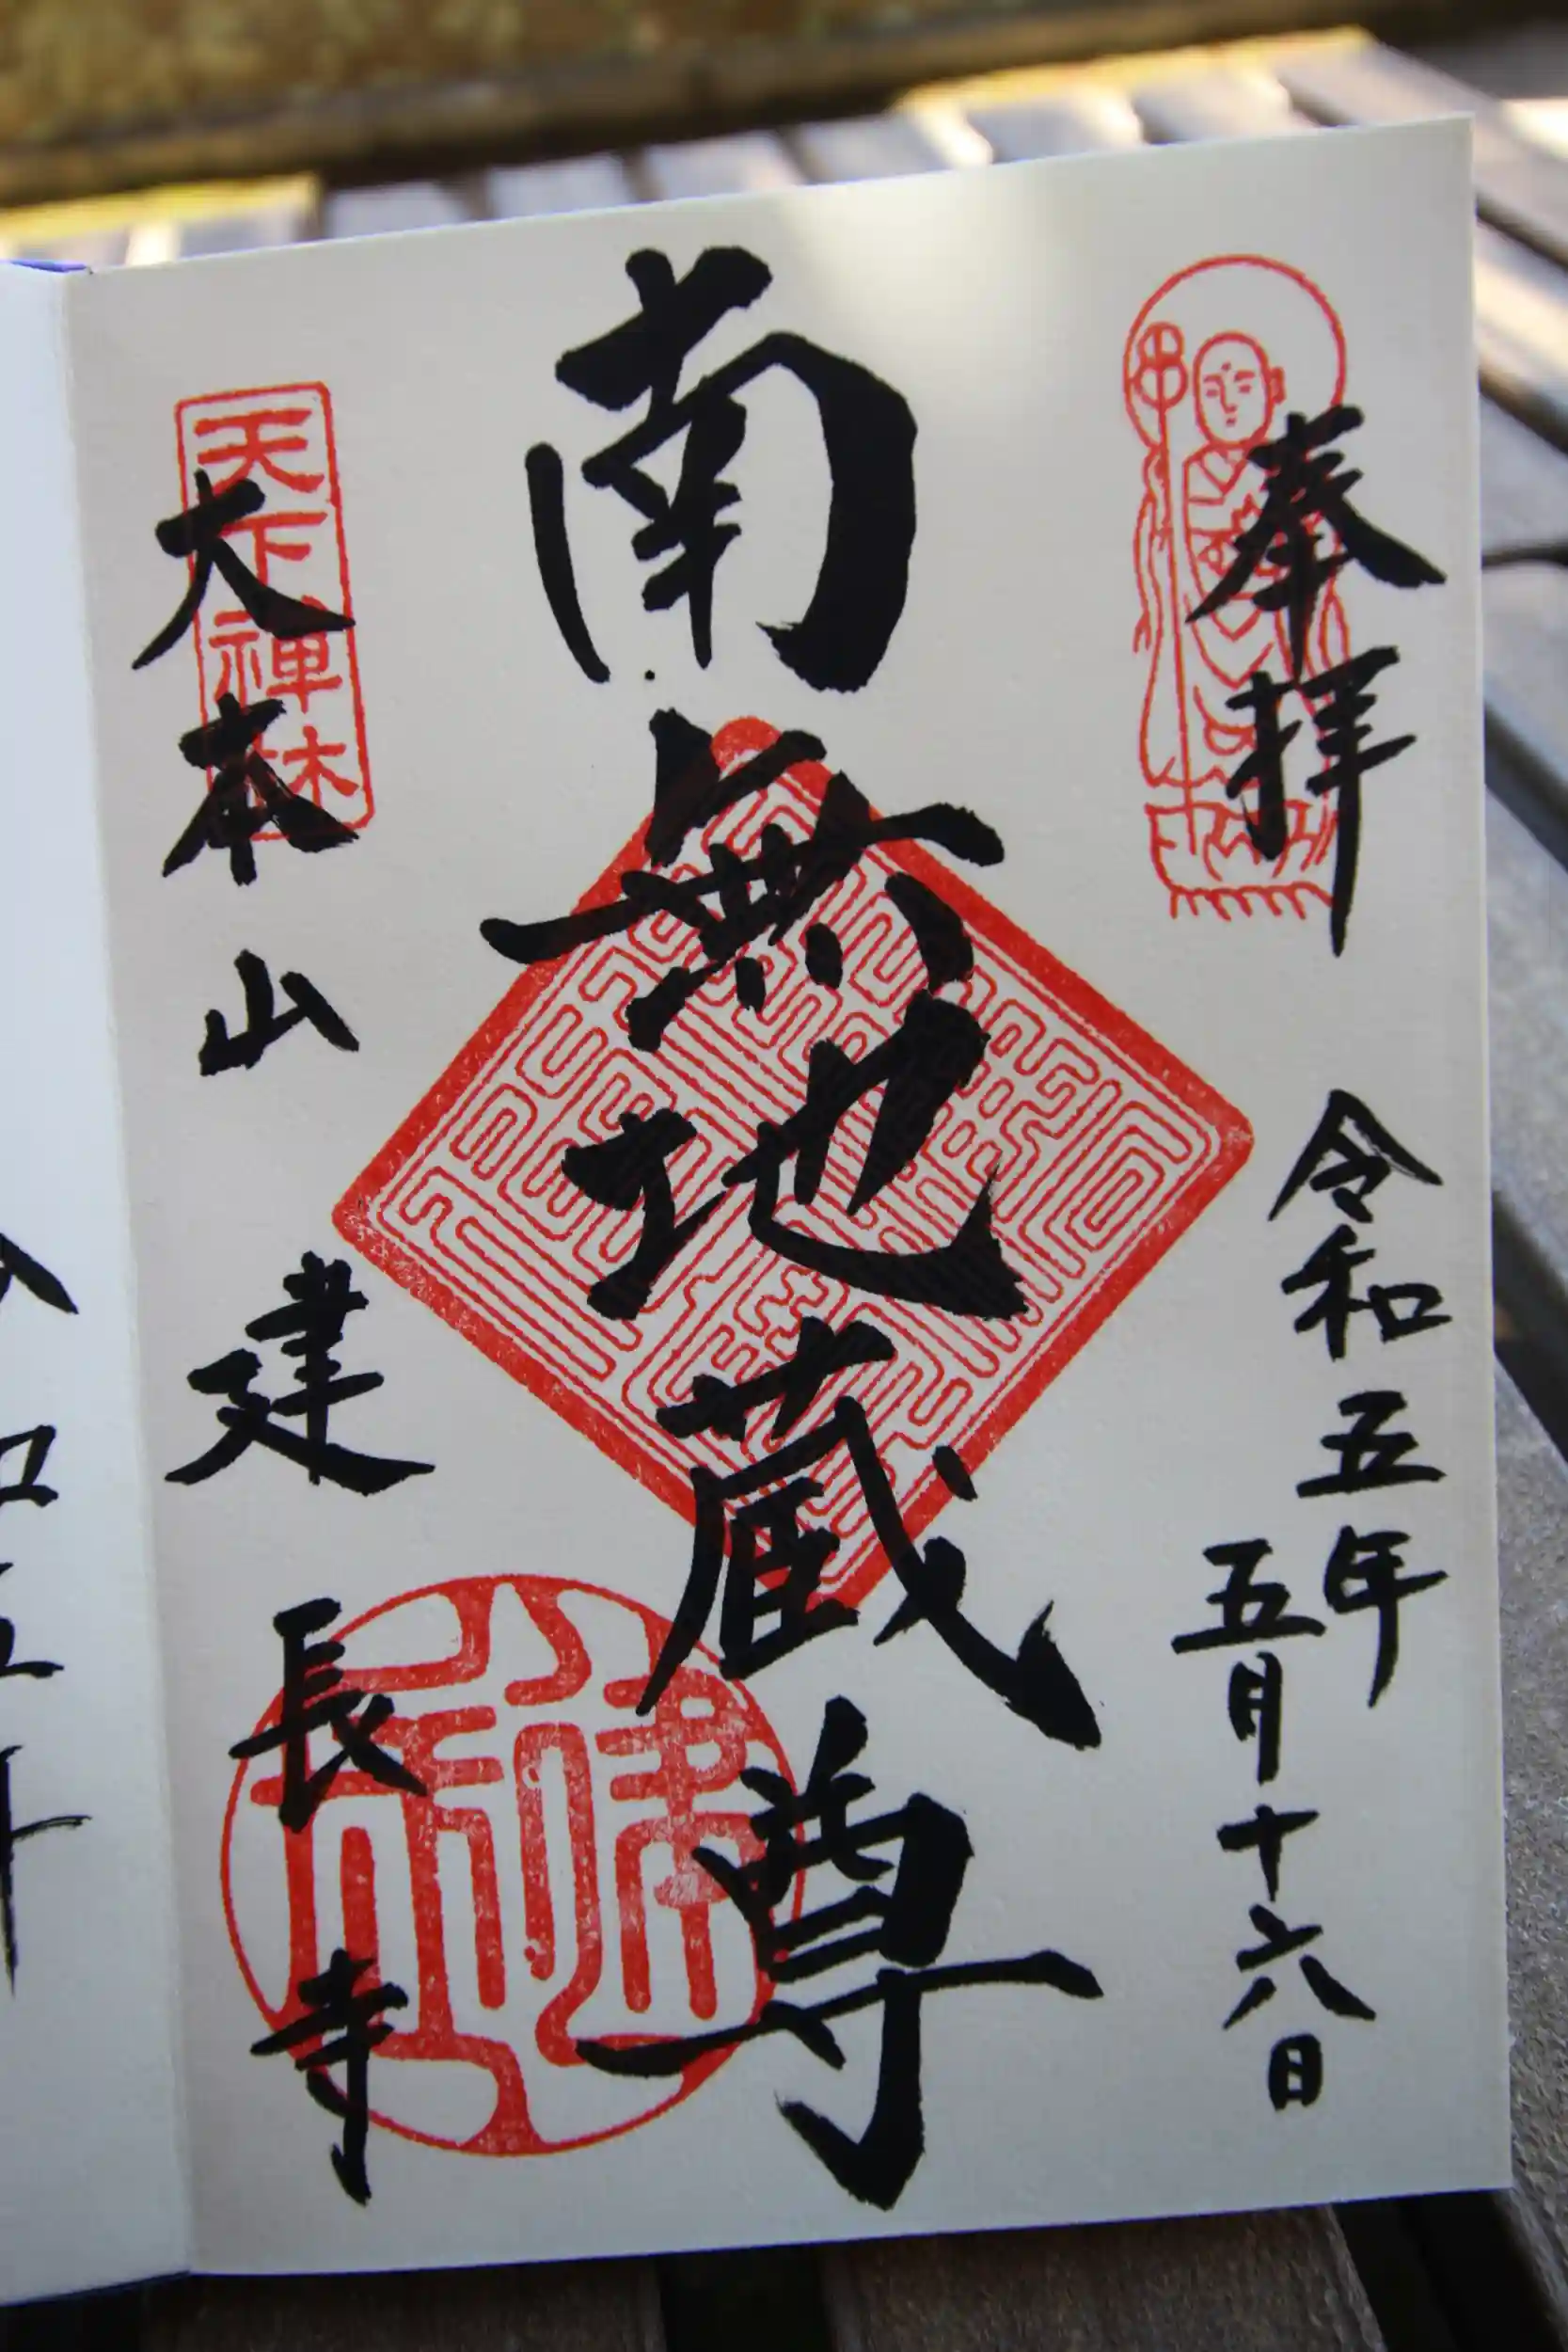 奉拝
令和五年
五月十六日
南無地蔵尊
天下禅林
大本山
建長寺